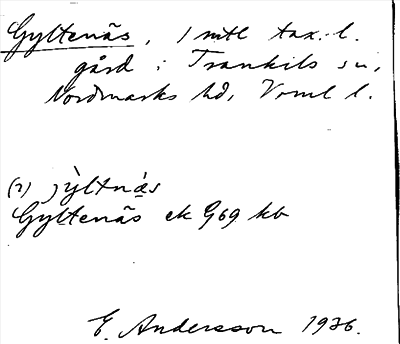 Gyltenäs, 1 mtl tax. l.
gård i Trankils sn,
Nordmarks hd, Vrml l.
(2) jỳltnás
Gyltenäs ek G69 kb
E. Andersson 1936.